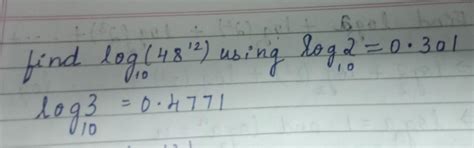 find log₁₀(48¹²) using log₁₀2 = 0.301
log₁₀3 = 0.4771